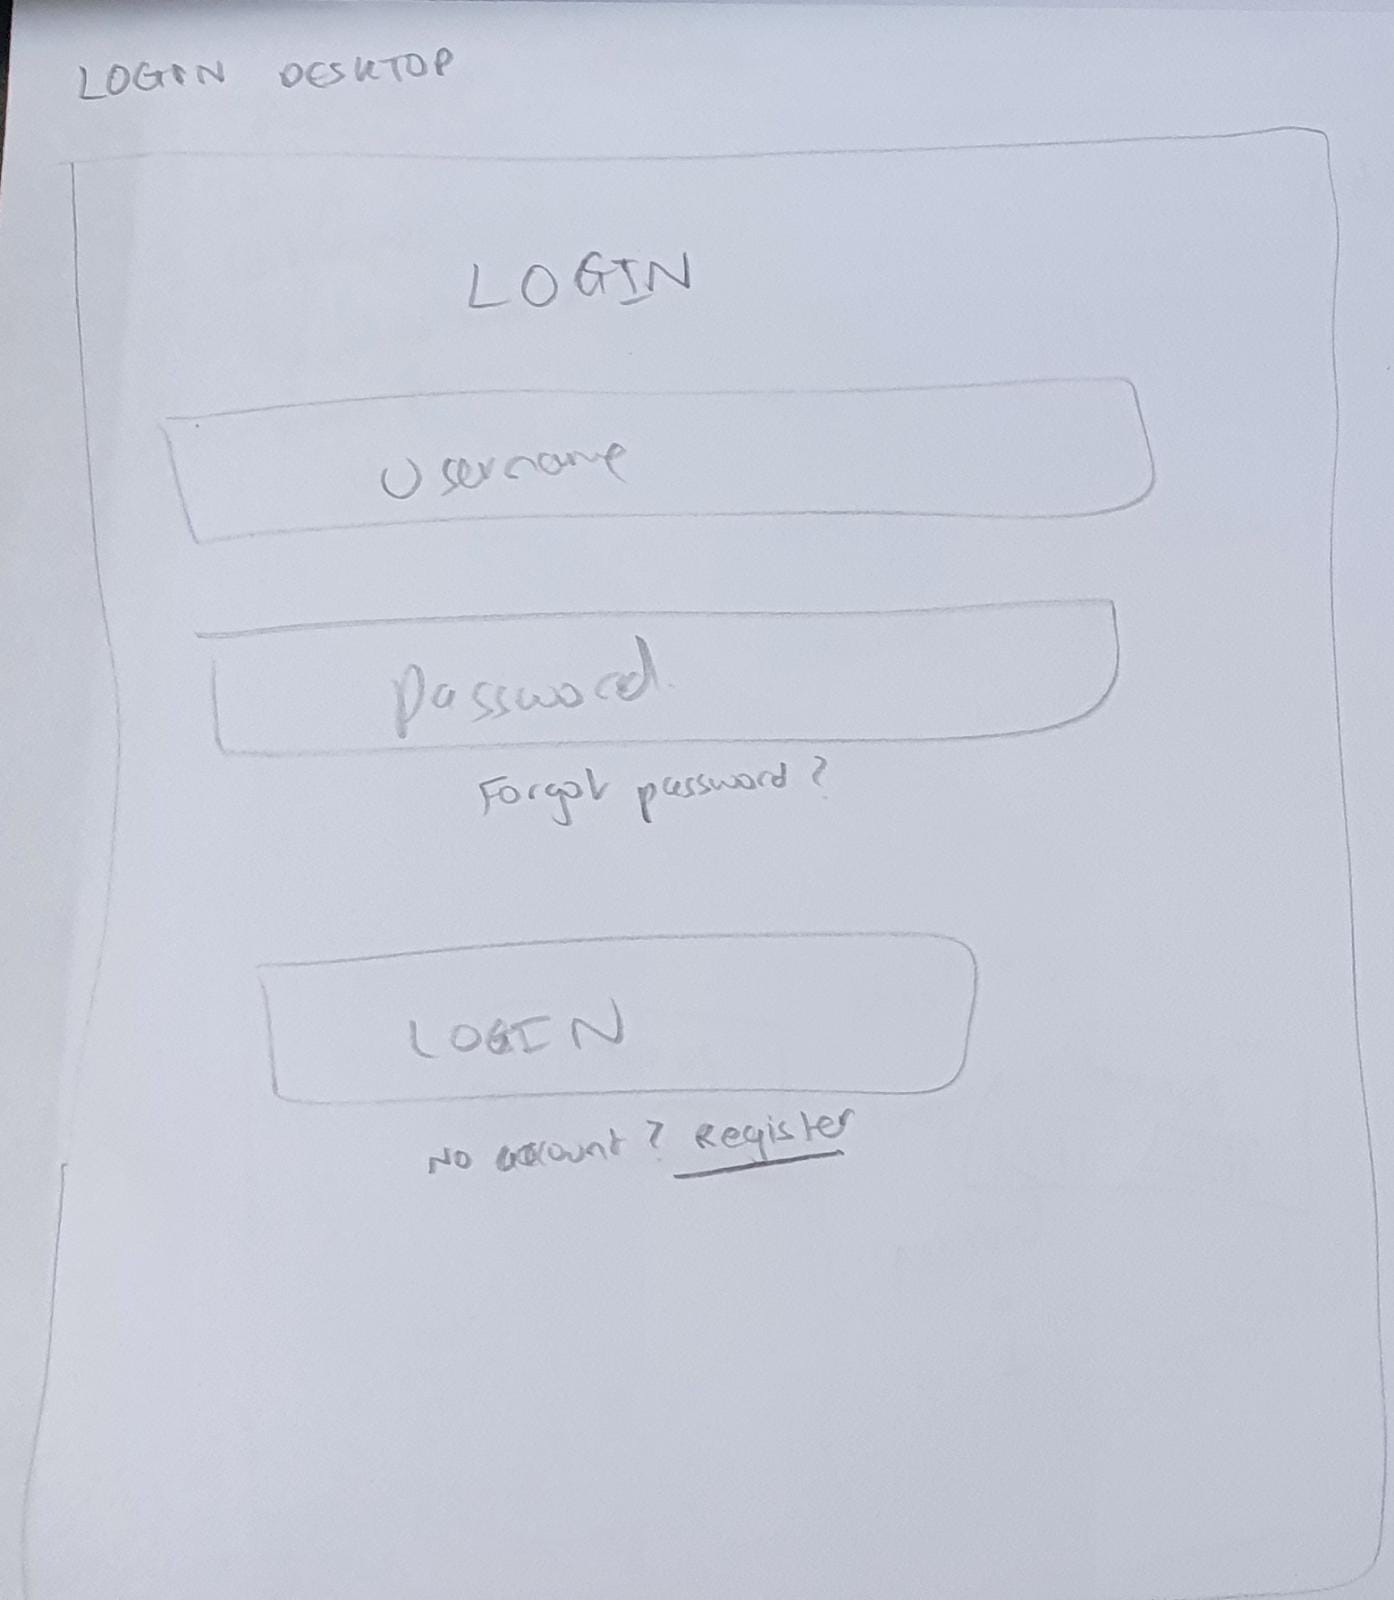 LOGIN DESKTOP
LOGIN
Username
Password
Forgot password?
LOGIN
No account? Register